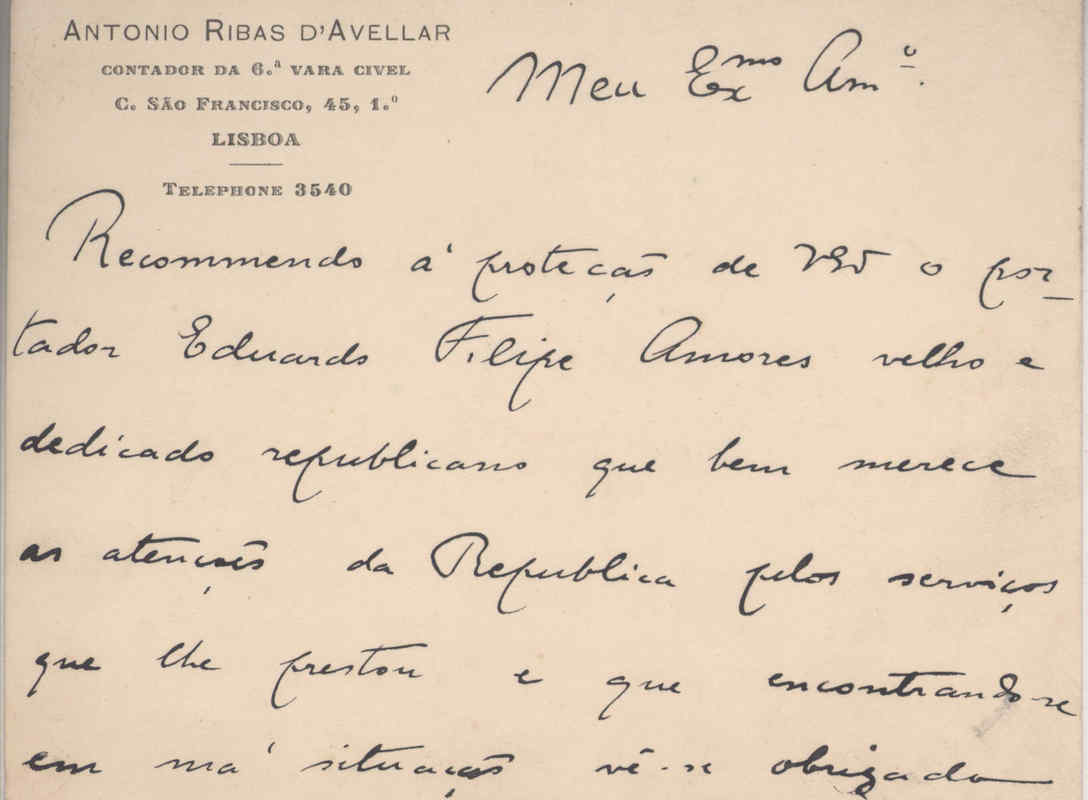 ANTONIO RIBAS D'AVELLAR
CONTADOR DA 6.ª VARA CIVEL
C. SÃO FRANCISCO, 45, 1.º
LISBOA
TELEPHONE 3540
Meu Exmo Amº.
Recommendo á proteção de VEª o por-
tador Eduardo Filipe Amores velho e
dedicado republicano que bem merece
as atenções da Republica pelos serviços
que lhe prestou e que encontrando-se
em má situação vê-se obrigado